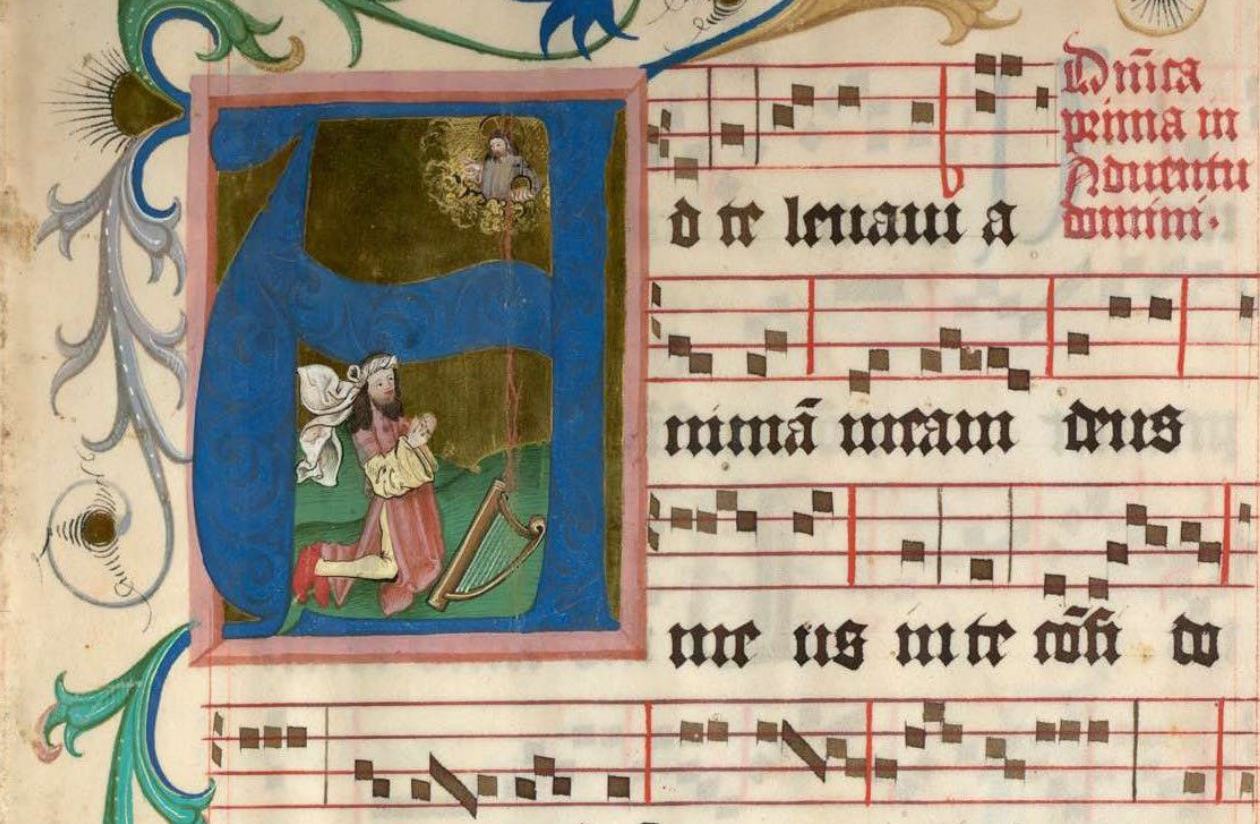 Dn̄ica
prima in
Aduentu
domini.
A
d te leuaui a
nimā meam deus
me us in te cōfi do